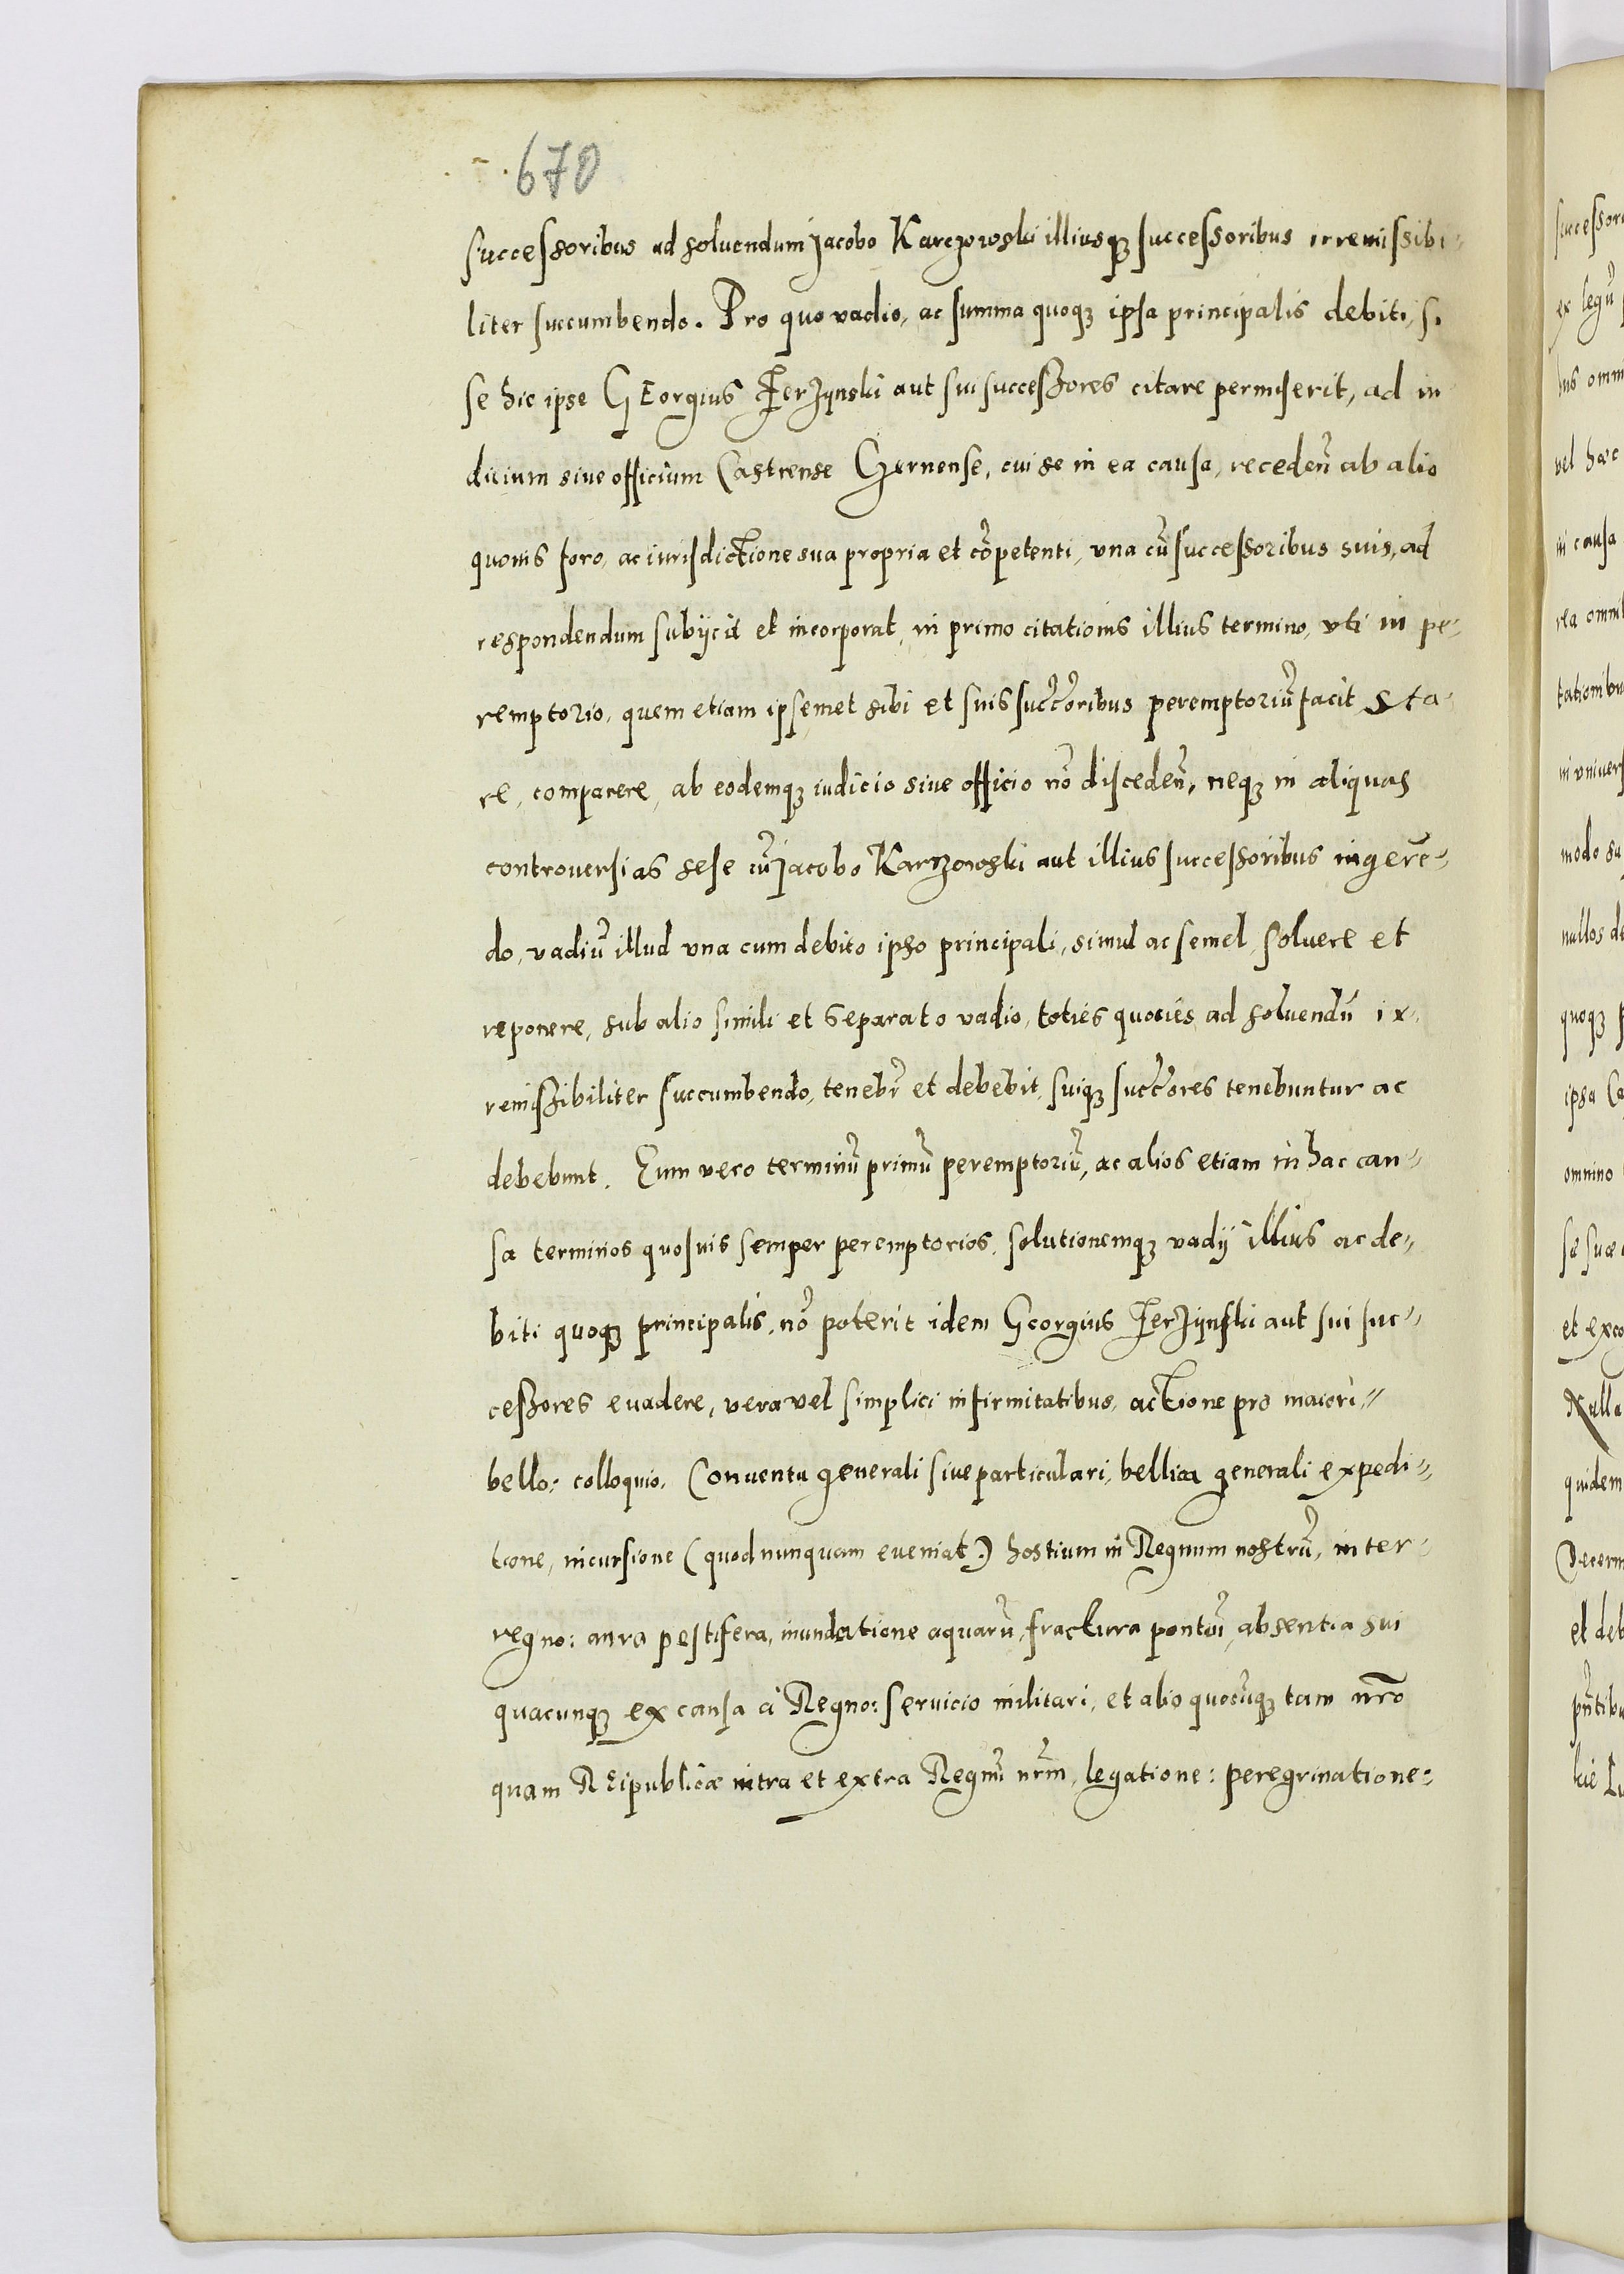 670
successoribus ad soluendum Jacobo Karczowski illiusqꝫ successoribus irremissibi-
liter succumbendo. Pro quo vadio, ac summa quoqꝫ ipsa principalis debiti, si
se hic ipse GEorgius Jerzÿnski aut sui successores citare permiserit, ad iu
dicium siue officium Castrense Gernense, cui se in ea causa, recedeñ ab alio
quouis foro, ac iurisdictione sua propria et cōpetenti, vna cū successoribus suis, ad
respondendum subijcit et incorporat, in primo citationis illius termino, vti in pe-
remptorio, quem etiam ipsemet sibi et suis succ̃oribus peremptoriū facit sta-
re, comparere, ab eodemqꝫ iudicio siue officio nō discedeñ, neqꝫ in aliquas
controuersias sese cū Jacobo Karczowski aut illius successoribus ingerē-
do, vadiū illud vna cum debito ipso principali, simul ac semel, soluere et
reponere, sub alio simili et separato vadio, toties quoties ad soluendū ir-
remissibiliter succumbendo, teneb̃r et debebit, suiqꝫ succ̃ores tenebuntur ac
debebunt. Eum vero terminū primū peremptoriū, ac alios etiam in hac cau-
sa terminos quosuis semper peremptorios, solutionemqꝫ vadij illius ac de-
biti quoqꝫ principalis, nō poterit idem Georgius Jerzÿnski aut sui suc-
cessores euadere, vera vel simplici infirmitatibus, actione pro maiori,
bello: colloquio. Conuentu generali siue particulari, bellica generali expedi-
tione, incursione (quod nunquam eueniat.) hostium in Regnum nostrū, inter-
regno: aura pestifera, inundatione aquarū, fractura pontiū, absentia sui
quacunqꝫ ex causa à Regno: seruicio militari, et alio quocūqꝫ tam nr̃o
quam REipublicæ intra et extra Regnū nr̃m, legatione: peregrinatione: